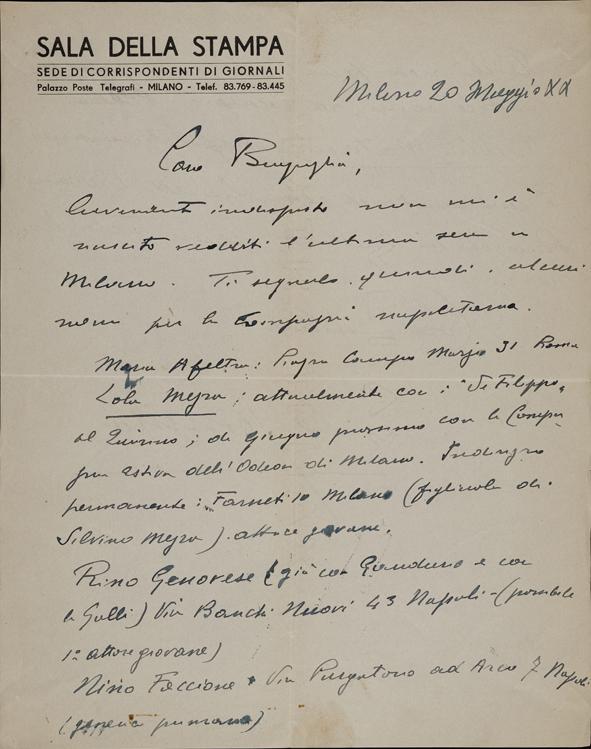 SALA DELLA STAMPA
SEDE DI CORRISPONDENTI DI GIORNALI
Palazzo Poste Telegrafi - MILANO - Telef. 83.769 - 83.445
Milano 20 Maggio XX
Caro Bragaglia,
indisposto non mi è
riuscito vederti l'ultima sera a
Milano. Ti segnalo, quindi, alcuni
nomi per la Compagnia napoletana.
Maria Afeltra: Piazza Campo Marzio 31 Roma
Lola Mezra; attualmente con i "De Filippo"
al Quirino; da giugno prossimo con la Compa
gnia estiva dell'Odeon di Milano. Indirizzo
permanente: Farneti 10 Milano (figliola di
Silvino Mezra) attrice giovane.
Rino Genovese (già con Gandusio e con
la Galli) Via Banchi Nuovi 43 Napoli - (possibile
1° attore giovane)
Nino Faccione Via Purgatorio ad Arco 7 Napoli